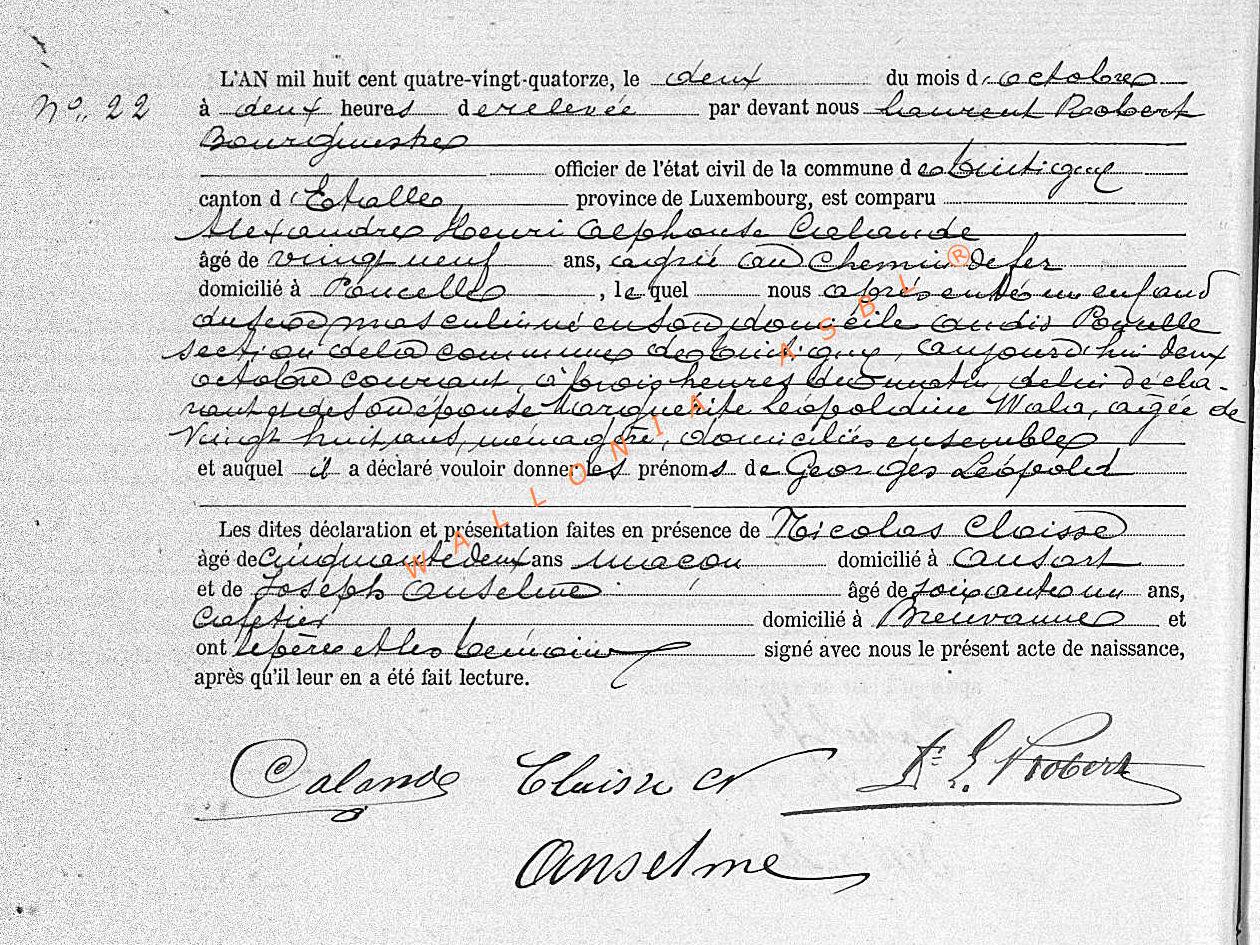 L'AN mil huit cent quatre-vingt-quatorze, le deux du mois d'octobre
N°. 22 à deux heures de relevée par devant nous Laurent Probert
Bourgmestre
officier de l'état civil de la commune de Tintigny
canton d'Etalle, province de Luxembourg, est comparu
Alexandre Henri Alphonse Calande
âgé de vingt neuf ans, agréé au Chemin de fer
domicilié à Poncelle, lequel nous a présenté un enfant
du sexe masculin né en son domicile audit Poncelle
section de la commune de Tintigny, aujourd'hui deux
octobre courant, à trois heures du matin, de lui décla-
rant et de son épouse Marguerite Léopoldine Wala, agée de
Vingt huit ans, ménagère, domiciliés ensemble
et auquel il a déclaré vouloir donner les prénoms de Georges Léopold
Les dites déclaration et présentation faites en présence de Nicolas Claisse
âgé de Cinquante deux ans maçon domicilié à Ansart
et de Joseph Anselme âgé de soixante un ans,
Cafetier domicilié à Breuvanne et
ont le père et les témoins signé avec nous le présent acte de naissance,
après qu'il leur en a été fait lecture.
Calande Claisse N Probert
Anselme
WALLONIA ASBL ®